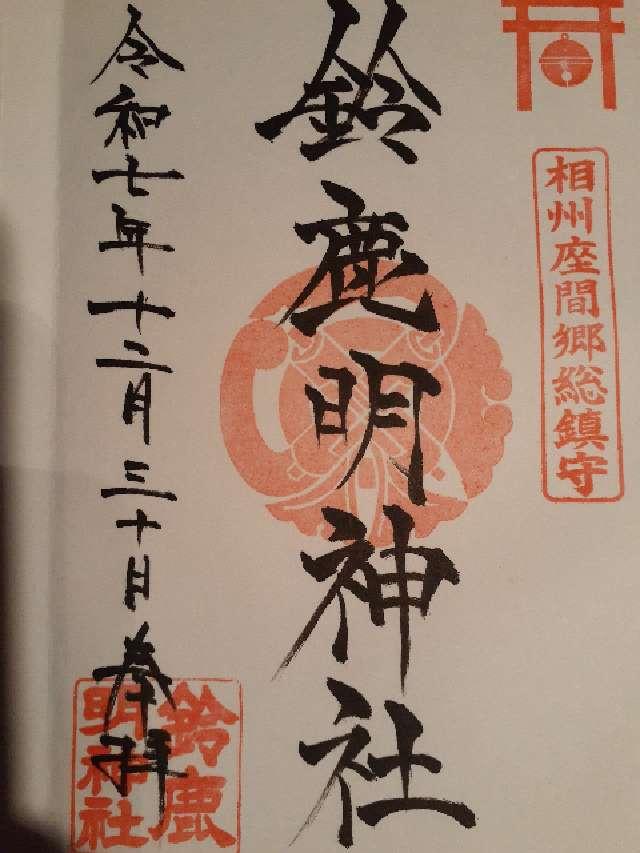 相州座間郷総鎮守
鈴鹿明神社
令和七年十二月三十日奉拝
鈴鹿
明神社